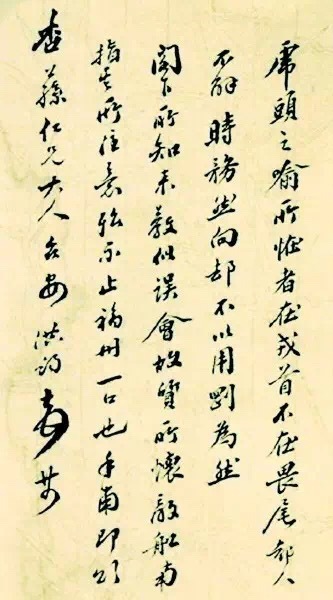 虎頭之喻所者在戎首不在畏尾鄙人
不解時務然向却不以用劉為然
閣下所知來教似誤會故質所懷敵船南
指其所注意殆不止福州一口也手肅即頌
杏蓀仁兄大人台安 洪鈞